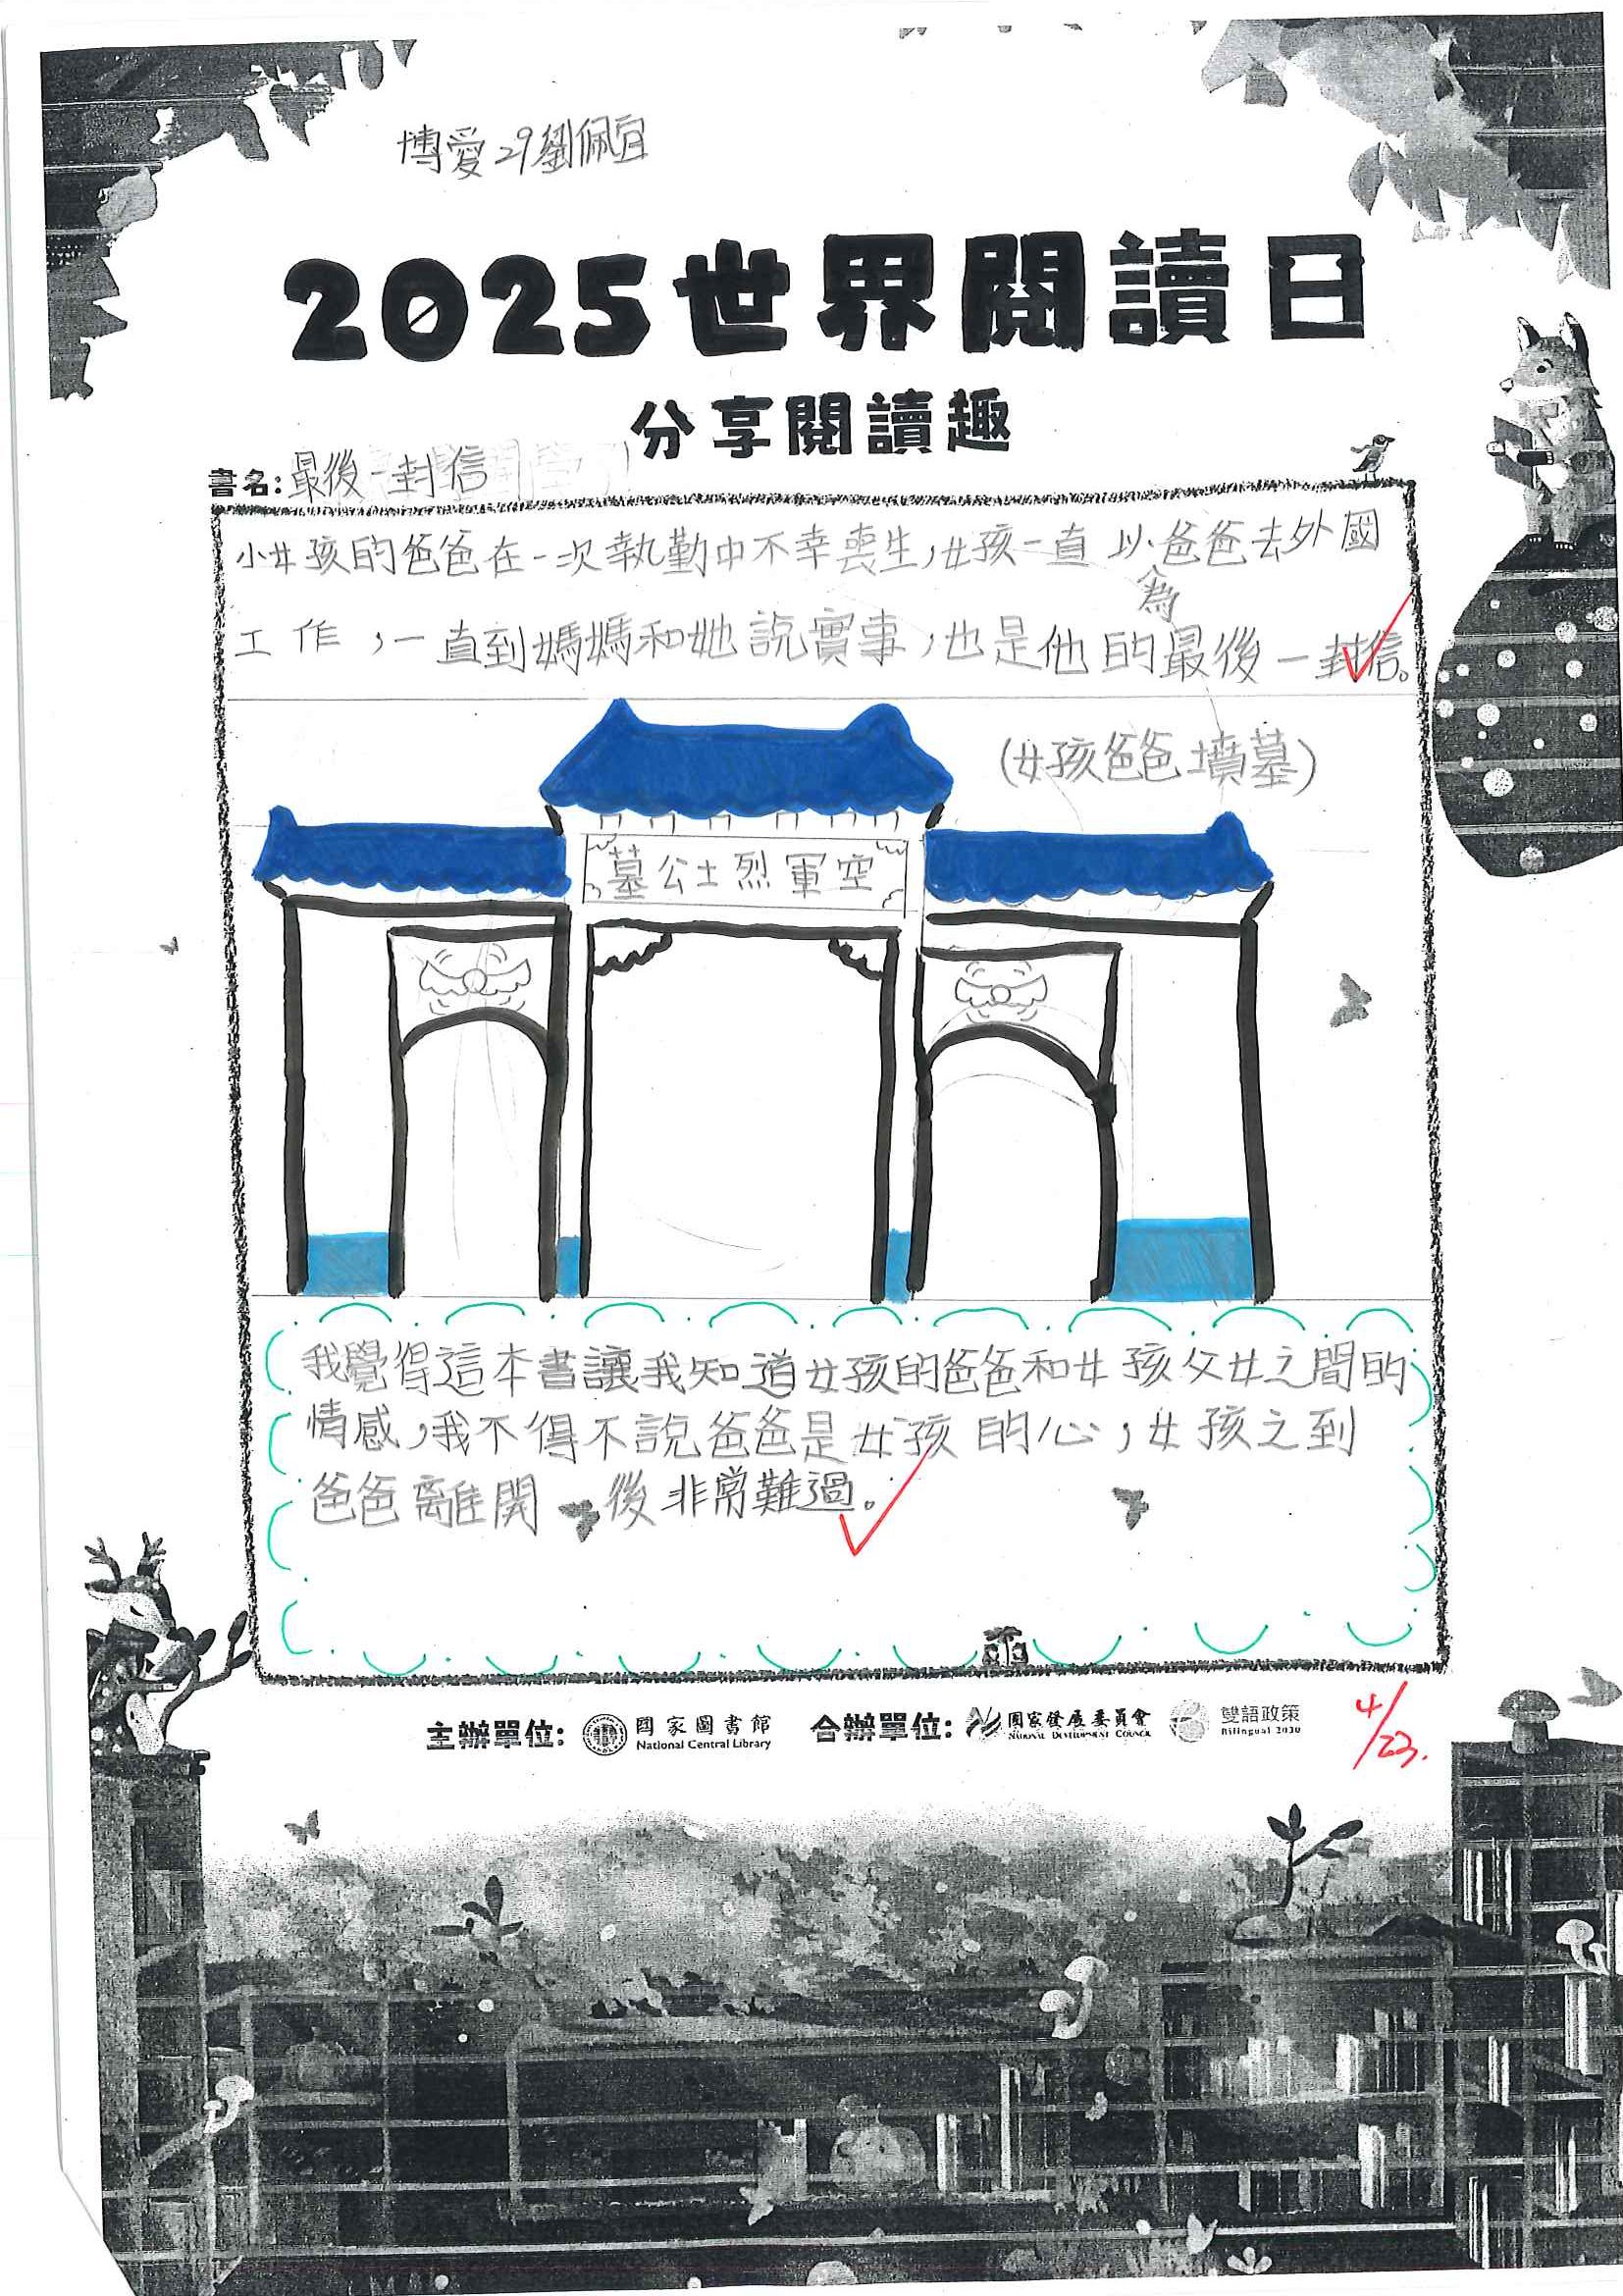 博愛 29 劉佩宜
2025世界閱讀日
分享閱讀趣
書名：最後一封信
小女孩的爸爸在一次執勤中不幸喪生，女孩一直以為爸爸去外國
工作，一直到媽媽和她說實事，也是他的最後一封信。
(女孩爸爸墳墓)
墓公士烈軍空
我覺得這本書讓我知道女孩的爸爸和女孩父女之間的
情感，我不得不說爸爸是女孩的心，女孩之到
爸爸離開 後非常難過。
主辦單位： 國家圖書館 National Central Library 合辦單位： 國家發展委員會 NATIONAL DEVELOPMENT COUNCIL 雙語政策 Bilingual 2030
4/23.